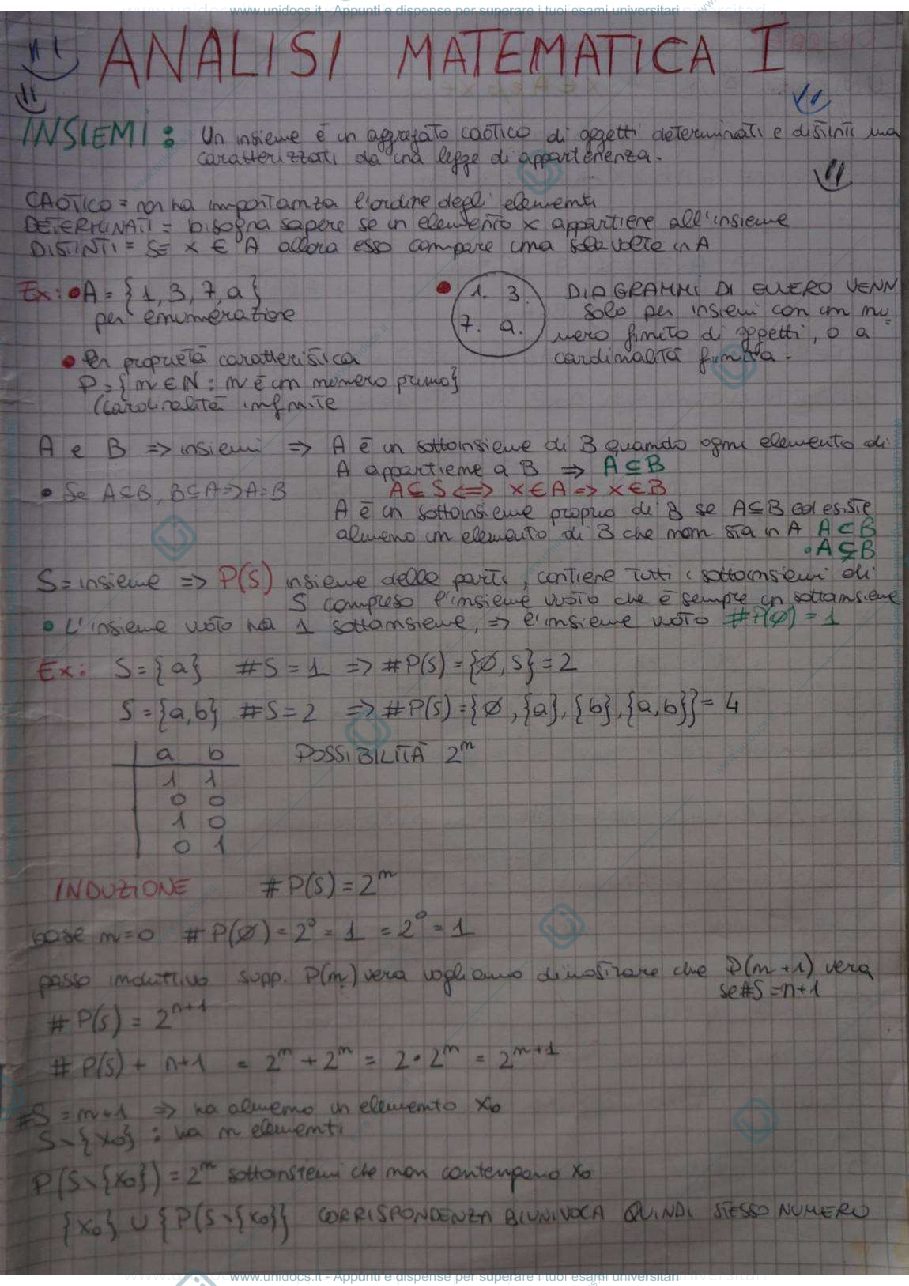 www.unidocs.it - Appunti e dispense per superare i tuoi esami universitari
ANALISI MATEMATICA I
INSIEMI: Un insieme è un aggregato caotico di oggetti determinati e distinti ma
caratterizzati da una legge di appartenenza.
CAOTICO = non ha importanza l'ordine degli elementi
DETERMINATI = bisogna sapere se un elemento x appartiene all'insieme
DISTINTI = se x ∈ A allora esso compare una sola volta in A
Ex: • A = {1, 3, 7, a}
per enumerazione
• 1. 3.
7. a.
DIAGRAMMI DI EULERO VENN
solo per insiemi con un nu
mero finito di oggetti, o a
cardinalità finita.
• Per proprietà caratteristica
P = {n ∈ N : n è un numero primo}
(cardinalità infinite
A e B => insiemi => A è un sottoinsieme di B quando ogni elemento di
A appartiene a B => A ⊆ B
• Se A⊆B, B⊆A => A=B
A ⊆ S <=> x ∈ A => x ∈ B
A è un sottoinsieme proprio di B se A⊆B ed esiste
almeno un elemento di B che non sta in A A ⊂ B
• A ⊊ B
S = insieme => P(S) insieme delle parti, contiene tutti i sottoinsiemi di
S compreso l'insieme vuoto che è sempre un sottoinsieme
• L'insieme vuoto ha 1 sottoinsieme, => l'insieme vuoto #P(∅) = 1
Ex: S = {a} #S = 1 => #P(S) = {∅, S} = 2
S = {a,b} #S = 2 => #P(S) = {∅, {a}, {b}, {a,b}} = 4
a b
1 1
0 0
1 0
0 1
POSSIBILITÀ 2ⁿ
INDUZIONE #P(S) = 2ⁿ
base n=0 #P(∅) = 2⁰ = 1 = 2⁰ = 1
passo induttivo supp. P(n) vera vogliamo dimostrare che P(n+1) vera
se #S = n+1
#P(S) = 2ⁿ⁺¹
#P(S) + n+1 = 2ⁿ + 2ⁿ = 2 • 2ⁿ = 2ⁿ⁺¹
#S = n+1 => ha almeno un elemento x₀
S∖{x₀} : ha n elementi
P(S∖{x₀}) = 2ⁿ sottoinsiemi che non contengono x₀
{x₀} ∪ {P(S∖{x₀}} CORRISPONDENZA BIUNIVOCA QUINDI STESSO NUMERO
www.unidocs.it - Appunti e dispense per superare i tuoi esami universitari